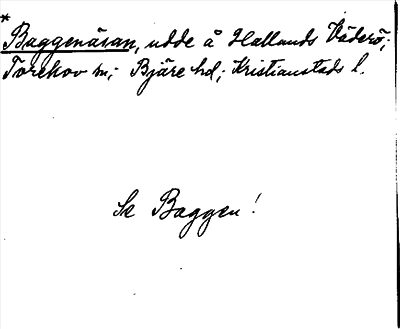 *
Baggenäsan, udde å Hallands Väderö;
Torekov sn; Bjäre hd; Kristianstads l.
Se Baggen!